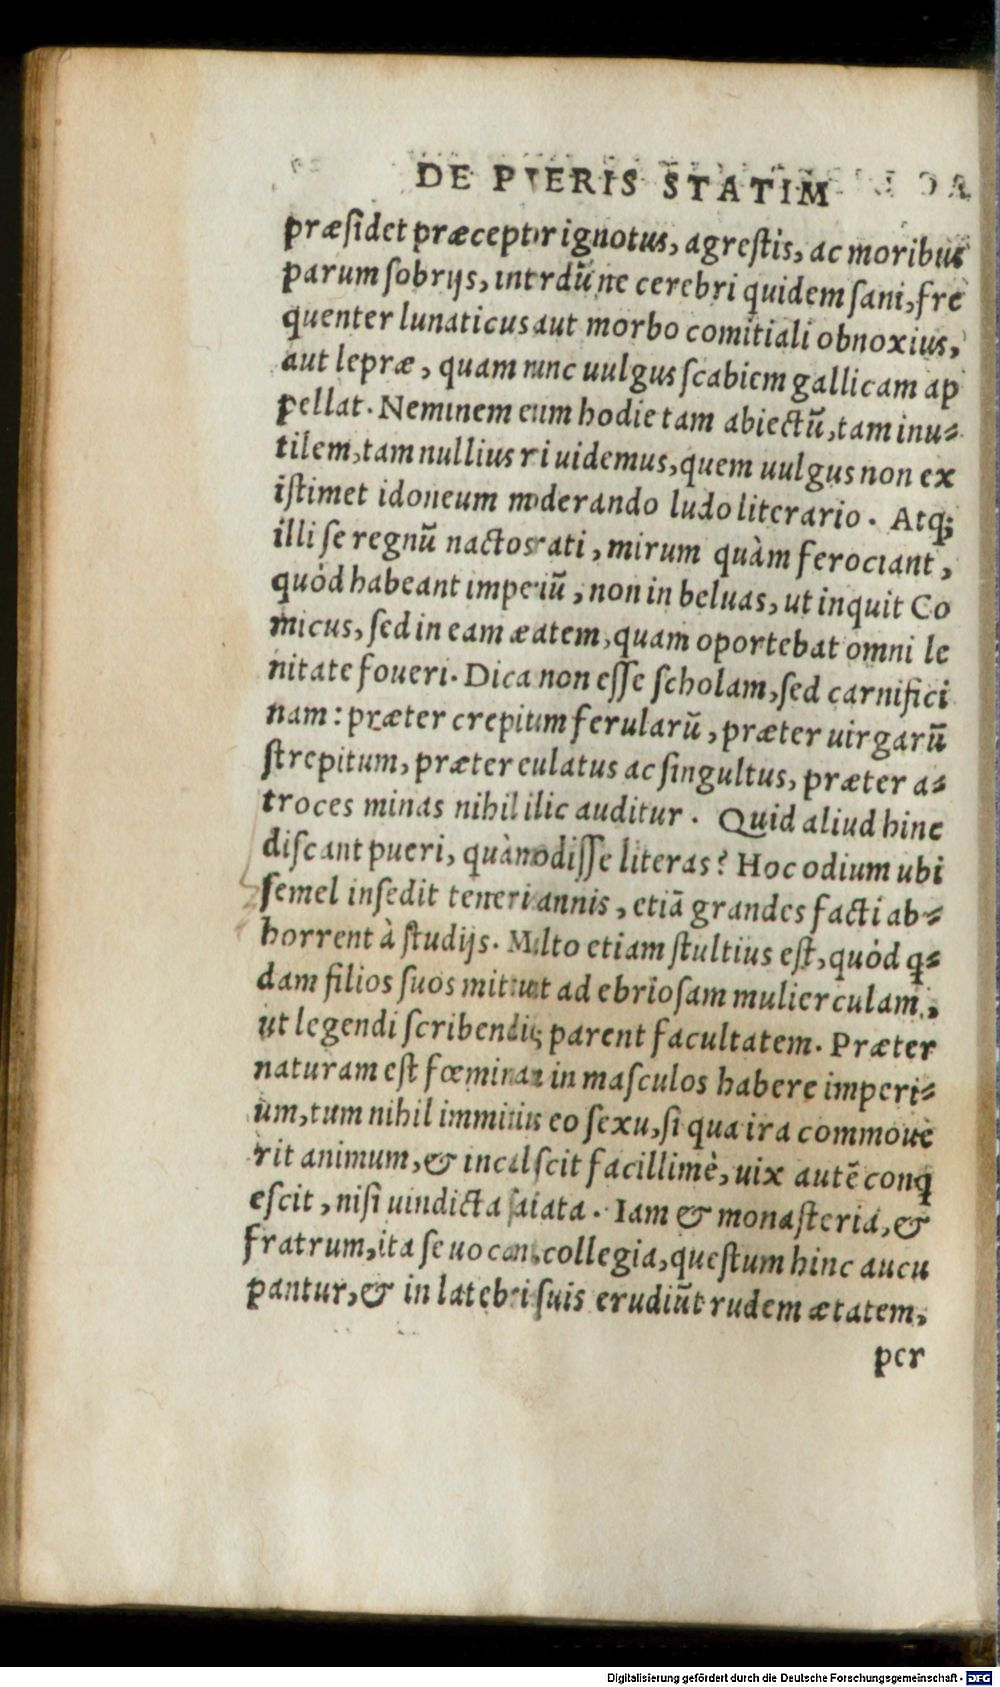 DE PVERIS STATIM
præſidet præceptor ignotus, agreſtis, ac moribus
parum ſobrijs, interdũ ne cerebri quidem ſani, fre
quenter lunaticus aut morbo comitiali obnoxius,
aut lepræ, quam nunc uulgus ſcabiem gallicam ap
pellat. Neminem enim hodie tam abiectũ, tam inu-
tilem, tam nullius rei uidemus, quem uulgus non ex
iſtimet idoneum moderando ludo literario. Atq;
illi ſe regnũ nactos rati, mirum quàm ferociant,
quòd habeant imperiũ, non in beluas, ut inquit Co
micus, ſed in eam ætatem, quam oportebat omni le
nitate foueri. Dicas non eſſe ſcholam, ſed carnifici
nam: præter crepitum ferularũ, præter uirgarũ
ſtrepitum, præter eiulatus ac ſingultus, præter a-
troces minas nihil illic auditur. Quid aliud hinc
diſcant pueri, quàm odiſſe literas? Hoc odium ubi
ſemel inſedit teneris annis, etiã grandes facti ab-
horrent à ſtudijs. Multo etiam ſtultius eſt, quòd q-
dam filios ſuos mittunt ad ebrioſam mulierculam,
ut legendi ſcribendiq; parent facultatem. Præter
naturam eſt fœminas in maſculos habere imperi-
um, tum nihil immitius eo ſexu, ſi qua ira commoue
rit animum, & incaleſcit facillimè, uix autẽ conq
eſcit, niſi uindicta ſatiata. Iam & monaſteria, &
fratrum, ita ſe uocant, collegia, queſtum hinc aucu
pantur, & in latebris ſuis erudiũt rudem ætatem,
per
Digitalisierung gefördert durch die Deutsche Forschungsgemeinschaft - DFG